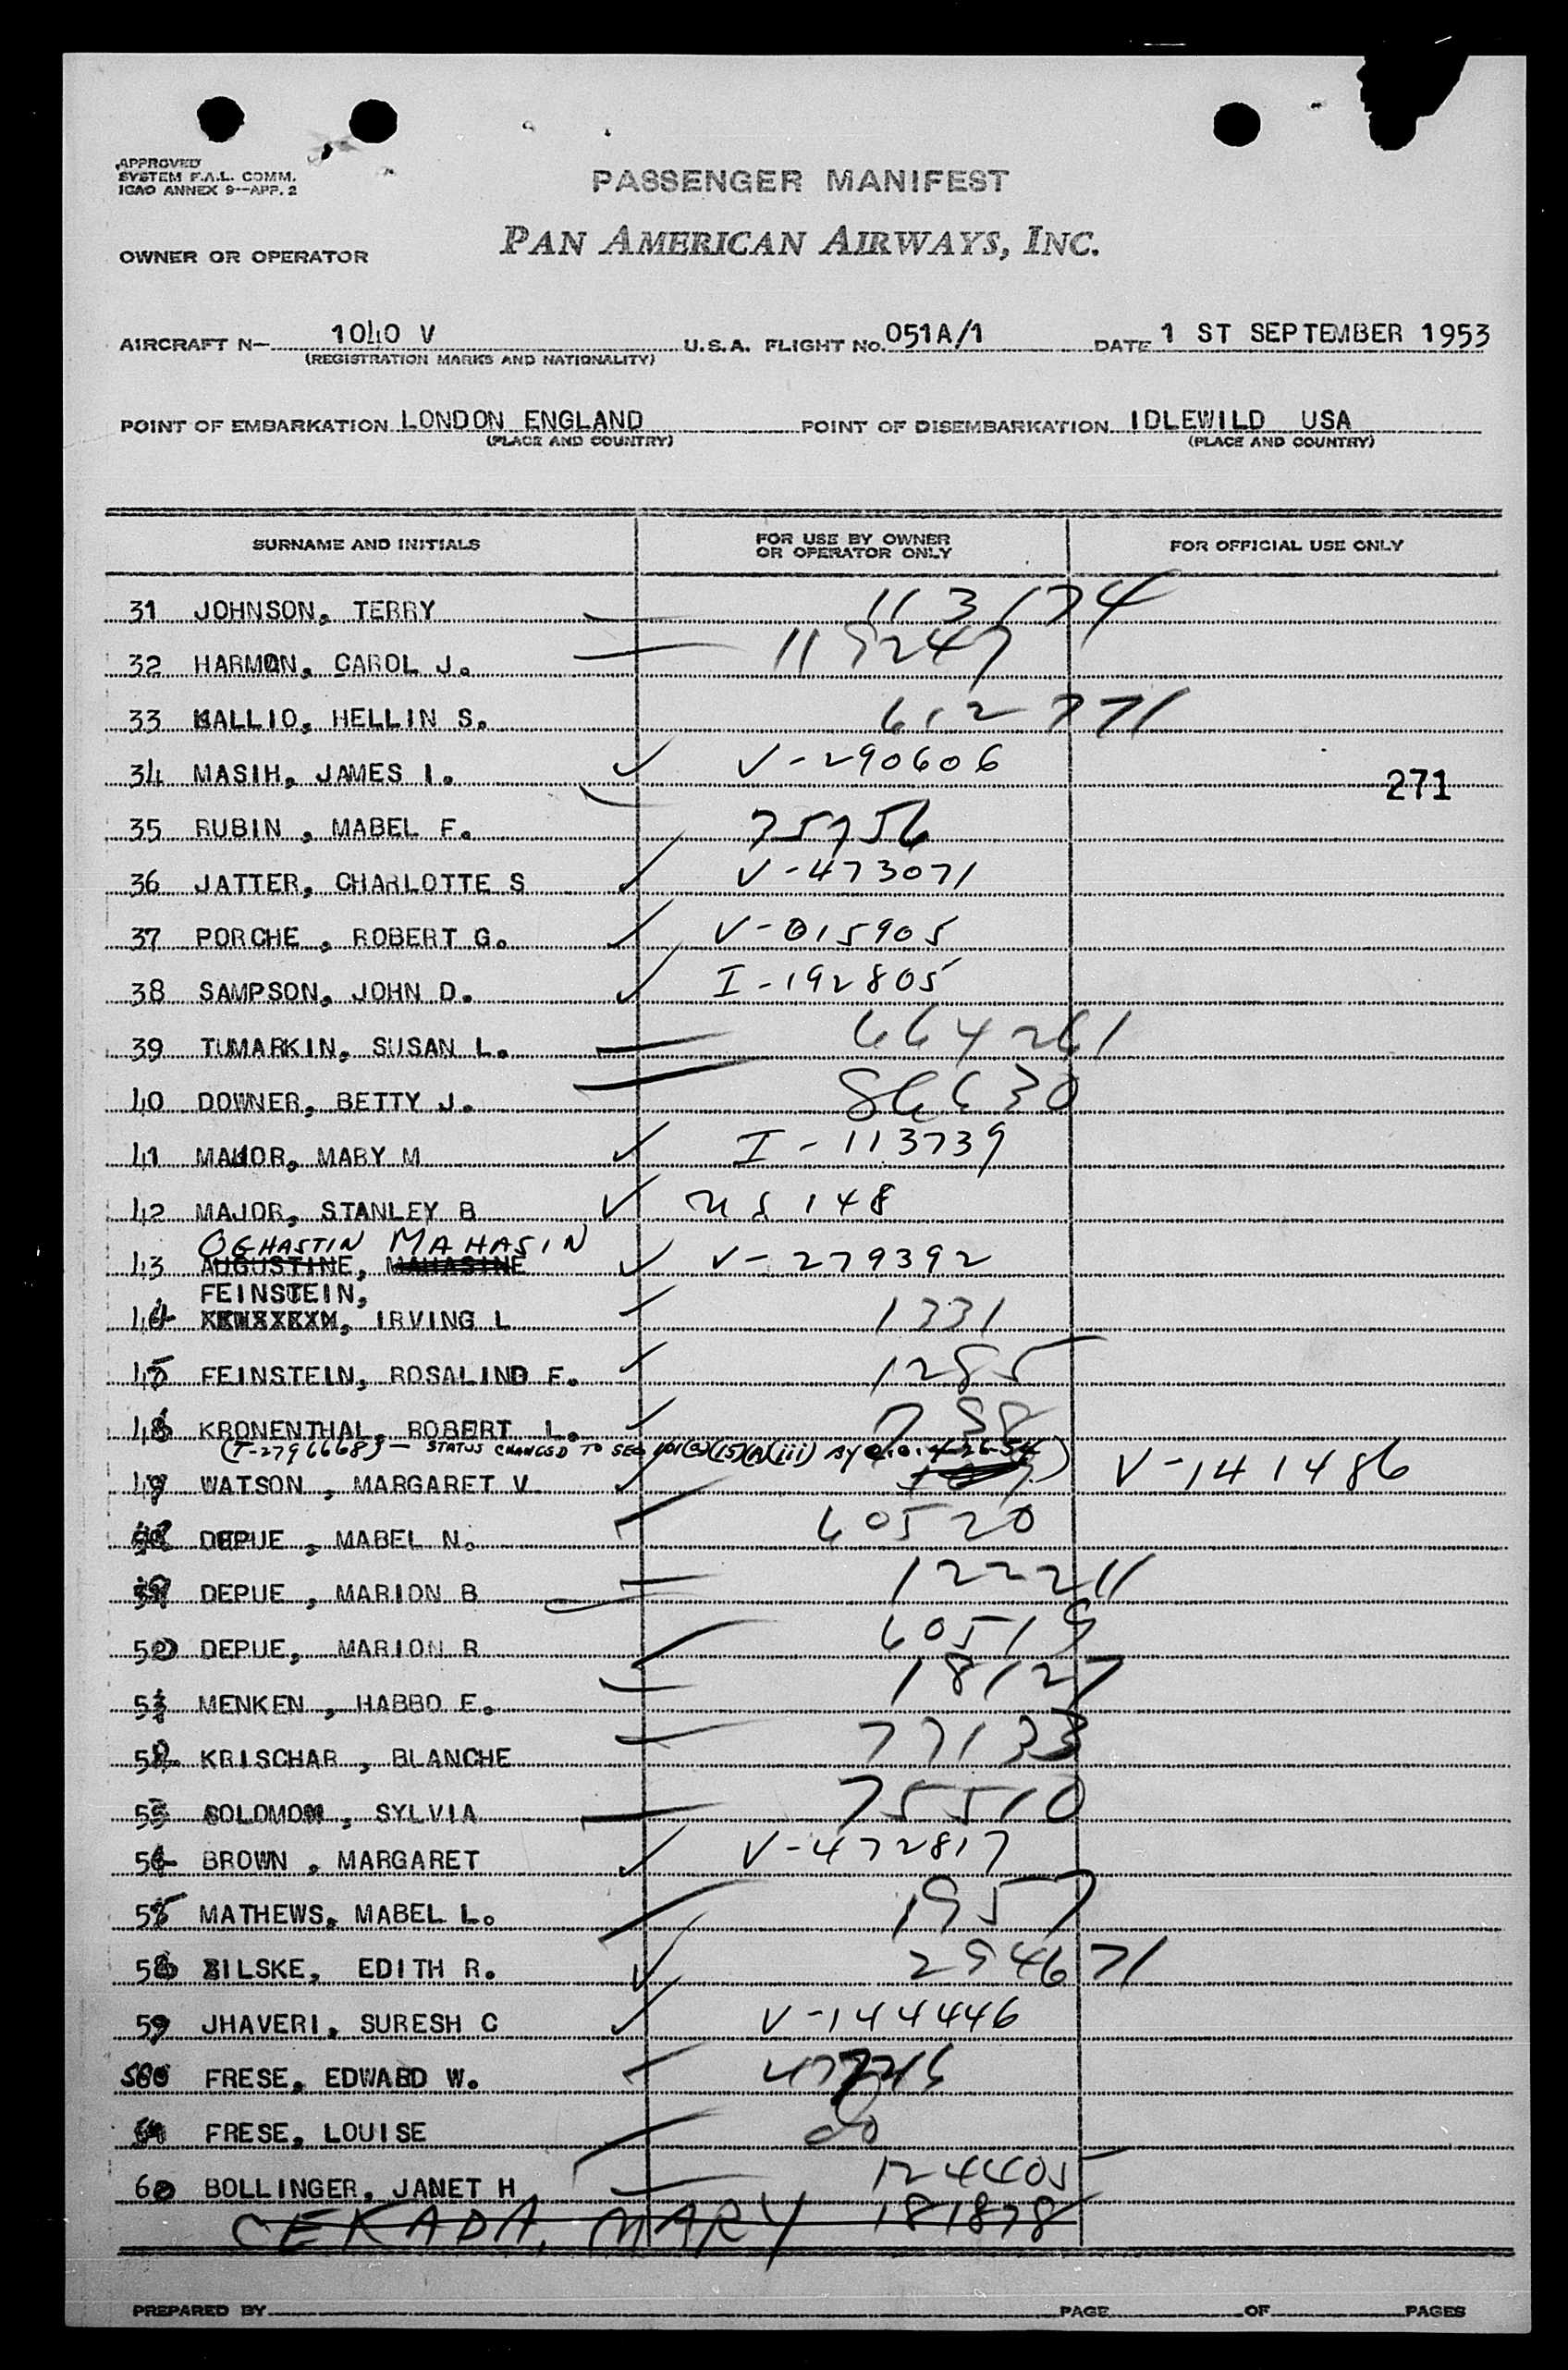 APPROVED
SYSTEM F.A.L. COMM.
ICAO ANNEX 9--APP. 2
PASSENGER MANIFEST
OWNER OR OPERATOR PAN AMERICAN AIRWAYS, INC.
AIRCRAFT N- 1040 V U.S.A. FLIGHT No. 051A/1 DATE 1 ST SEPTEMBER 1953
(REGISTRATION MARKS AND NATIONALITY)
POINT OF EMBARKATION LONDON ENGLAND POINT OF DISEMBARKATION IDLEWILD USA
(PLACE AND COUNTRY) (PLACE AND COUNTRY)
SURNAME AND INITIALS FOR USE BY OWNER OR OPERATOR ONLY FOR OFFICIAL USE ONLY
31 JOHNSON, TERRY 113174
32 HARMON, CAROL J. 119247
33 KALLIO, HELLIN S. 612771
34 MASIH, JAMES I. V-290606
271
35 RUBIN , MABEL F. 75756
36 JATTER, CHARLOTTE S V-473071
37 PORCHE , ROBERT G. V-015905
38 SAMPSON, JOHN D. I-192805
39 TUMARKIN, SUSAN L. 664261
40 DOWNER, BETTY J. 86630
41 MAJOR, MARY M I-113739
42 MAJOR, STANLEY B 148
OGHASTIN MAHASIN
43 AUGUSTINE, MAHASINE V-279392
FEINSTEIN,
44 IRVING L 1331
45 FEINSTEIN, ROSALIND F. 1285
KRONENTHAL, ROBERT L. 738
(T-2796668) - STATUS CHANGED TO SEC 101(a)(15)(A)(iii) BY
WATSON , MARGARET V V-141486
DEPUE , MABEL N. 60520
DEPUE , MARION B 122211
50 DEPUE, MARION R 60519
MENKEN , HABBO E. 18127
52 KRISCHAR , BLANCHE 77133
SOLOMON , SYLVIA 75510
54 BROWN , MARGARET V-472817
55 MATHEWS, MABEL L. 1957
ZILSKE, EDITH R. 294671
JHAVERI, SURESH C V-144446
FRESE, EDWARD W.
FRESE, LOUISE do
60 BOLLINGER, JANET H 124405
CEKADA, MARY 181878
PREPARED BY PAGE OF PAGES